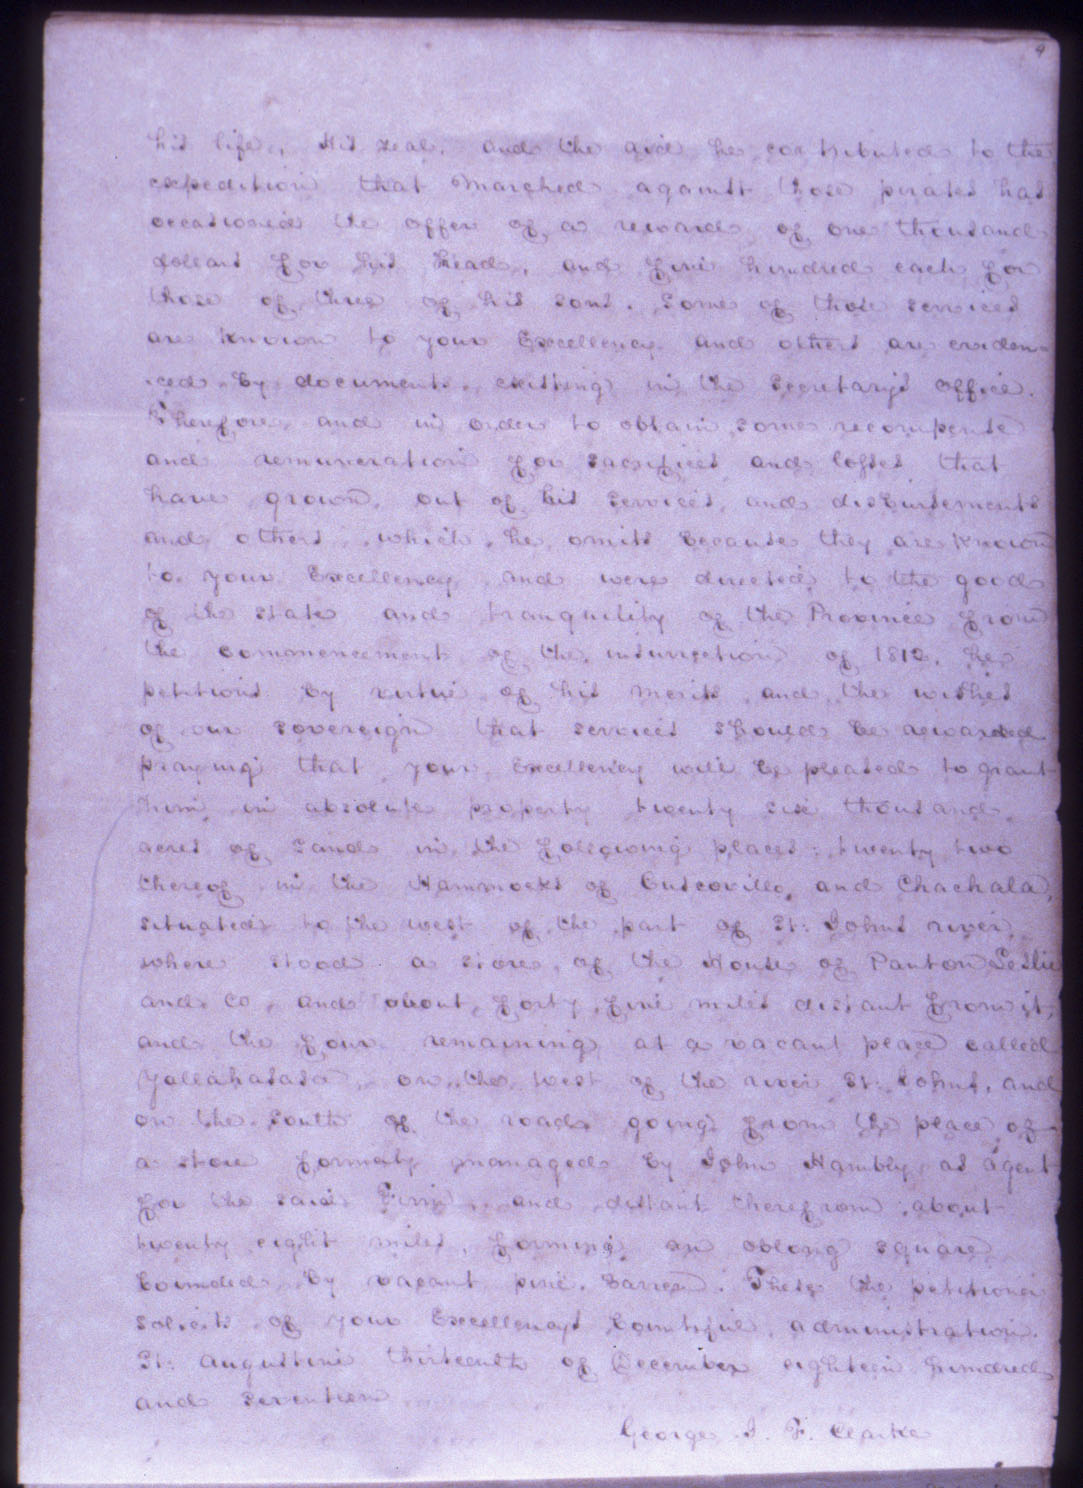 9
his life, His zeal, and the aid he contributed to the
expedition that marched against those pirates has
occasioned the offer of a reward of one thousand
dollars for his head, and five hundred each for
those of three of his sons. Some of those services
are known to your Excellency and others are eviden-
-ced by documents existing in the Secretary's office.
Therefore, and in order to obtain some recompense
and remuneration for sacrifices and losses that
have grown out of his services, and disbursements
and others which he omits because they are known
to your Excellency and were directed to the good
of the state and tranquility of the Province from
the commencement of the insurrection of 1812. he
petitions by virtue of his merits and the wishes
of our sovereign that services should be rewarded
praying that your Excellency will be pleased to grant
him in absolute property twenty six thousand
acres of land in the following places: twenty two
thereof in the Hammocks of Cuscovilla, and Chachala,
situated to the west of the part of St: Johns river
where stood a store of the House of Panton Leslie
and Co, and about forty five miles distant from it,
and the four remaining at a vacant place called
Yallahasasa, on the west of the river St: Johns, and
on the South of the road going from the place of
a store formerly managed by John Hambly as agent
for the said Firm, and distant therefrom about
twenty eight miles, forming an oblong square
bounded by vacant pine barren. These the petitioner
solicits of your Excellencys bountiful administration.
St: Augustine thirteenth of December eighteen hundred
and seventeen
George J. F. Clarke